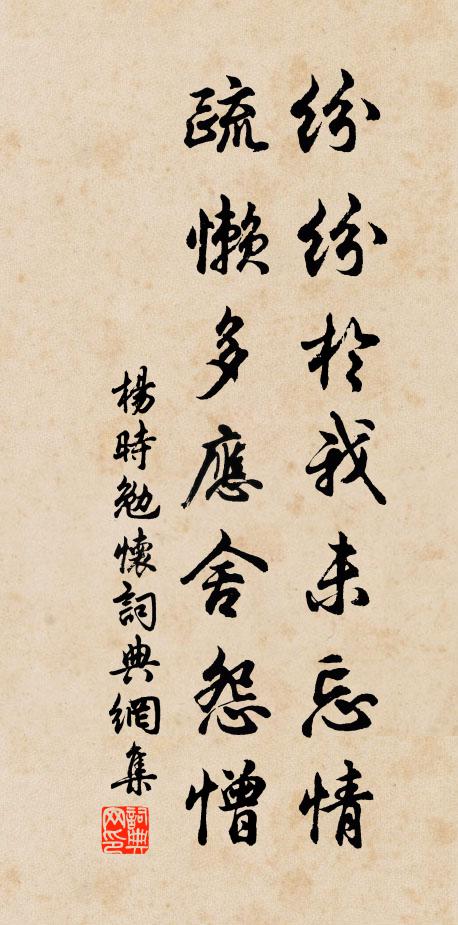 纷纷於我未忘情
疏懒多應舍怨憎
楊時勉懷詞典網集
詞典网印